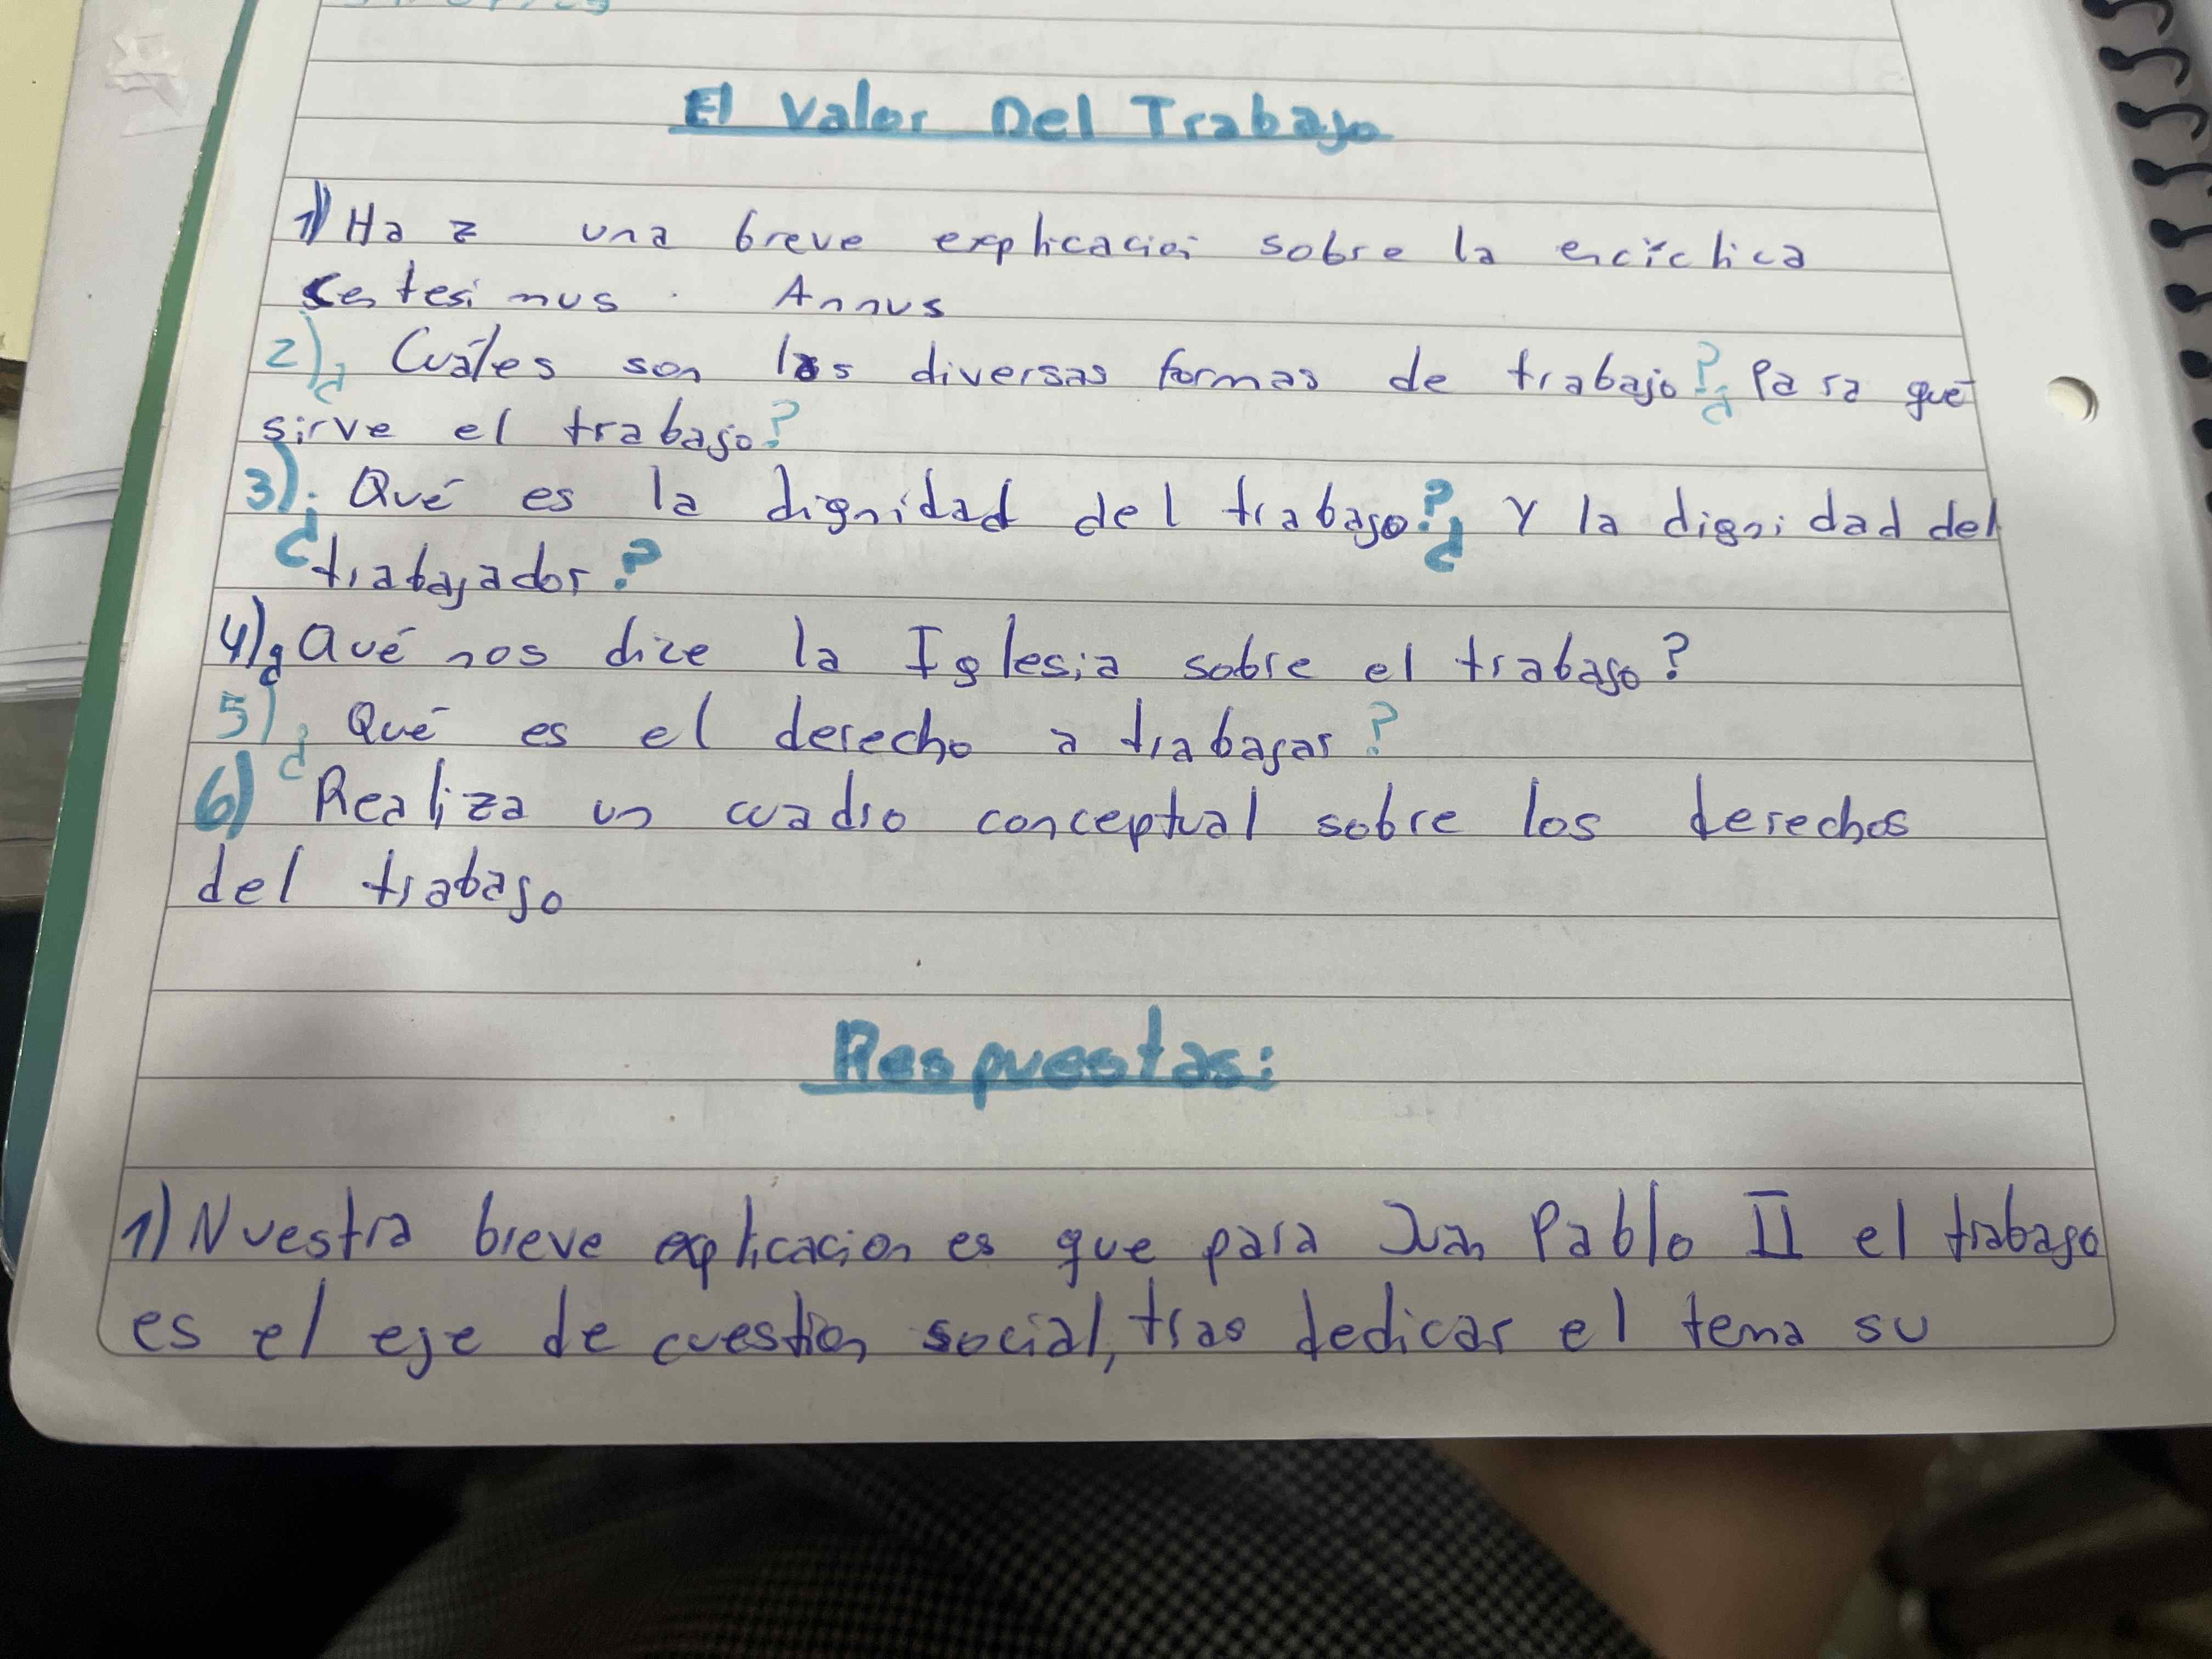 El Valor Del Trabajo
1) Haz una breve explicación sobre la encíclica
Centesimus Annus
2) ¿Cuáles son las diversas formas de trabajo? ¿Para qué
sirve el trabajo?
3) ¿Qué es la dignidad del trabajo? ¿Y la dignidad del
trabajador?
4) ¿Qué nos dice la Iglesia sobre el trabajo?
5) ¿Qué es el derecho a trabajar?
6) Realiza un cuadro conceptual sobre los derechos
del trabajo
Respuestas:
1) Nuestra breve explicacion es que para Juan Pablo II el trabajo
es el eje de cuestion social, tras dedicar el tema su